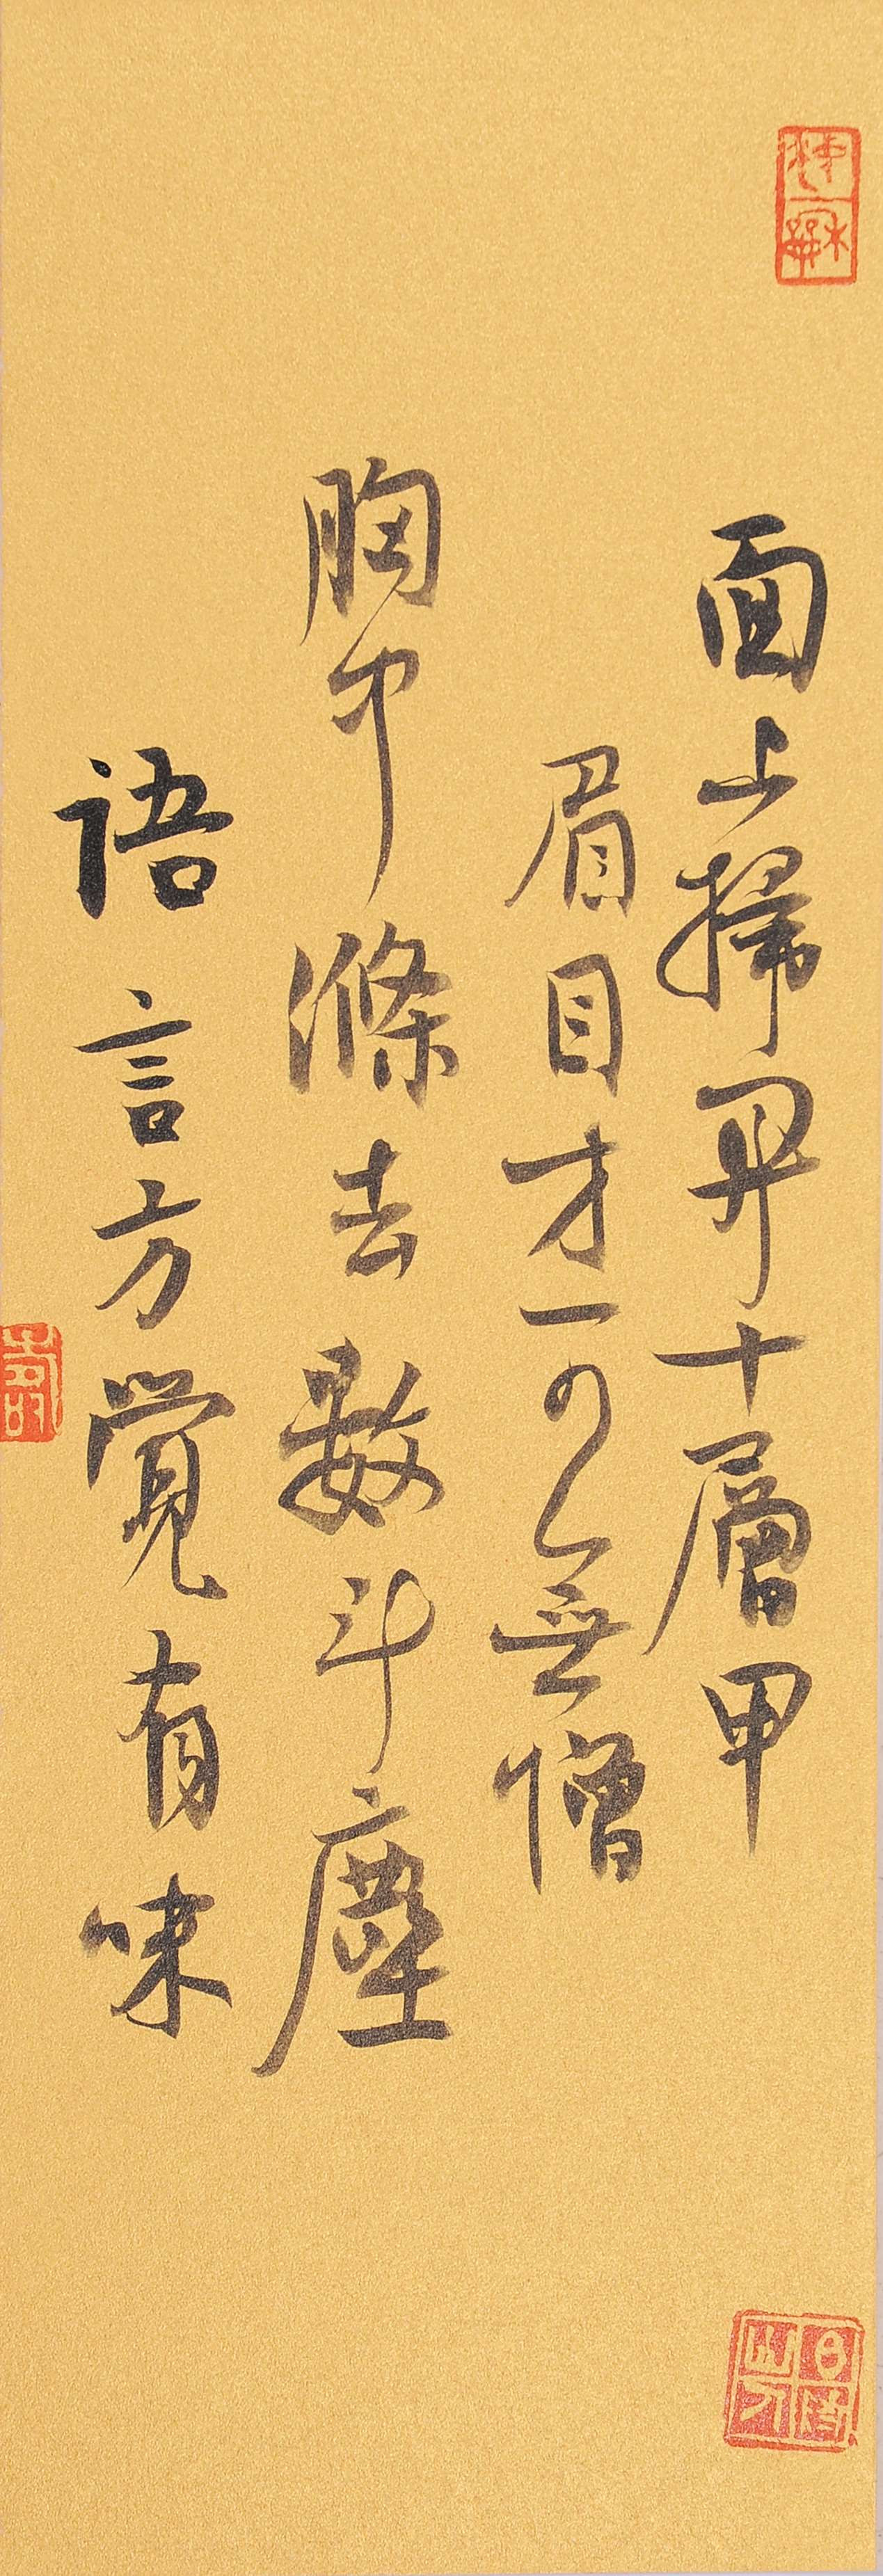 面上掃開十層甲
眉目才可無憎
胸中滌去數斗塵
語言方覺有味